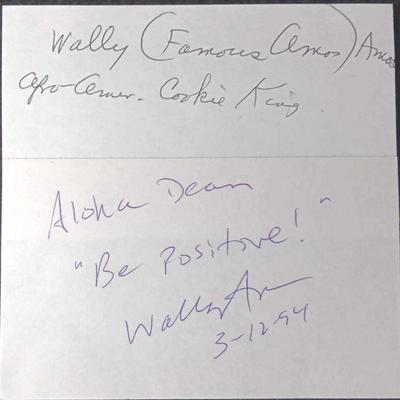 Wally (Famous Amos) Amos
Afro-Amer. Cookie King
Aloha Dean
"Be Positive!"
Wally Am
3-12-94